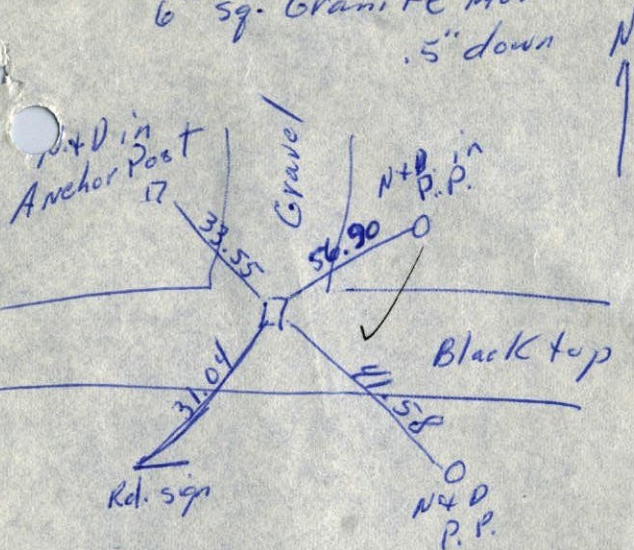 6" sq. Granite
.5" down
N
N+D in
Anchor Post
Gravel
N+D in
P.P.
33.55
56.90
Black top
31.04
41.58
Rd. sign
N+D
P.P.